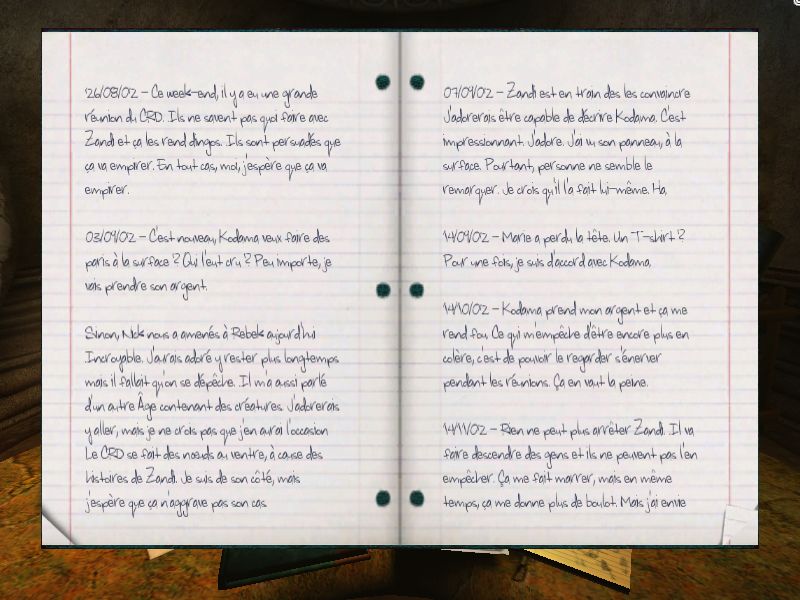 26/08/02 - Ce week-end, il y a eu une grande
réunion du CRD. Ils ne savent pas quoi faire avec
Zandi et ça les rend dingos. Ils sont persuadés que
ça va empirer. En tout cas, moi, j'espère que ça va
empirer.
03/09/02 - C'est nouveau, Kodama veux faire des
paris à la surface ? Qui l'eut cru ? Peu importe, je
vais prendre son argent.
Sinon, Nick nous a amenés à Rebek aujourd'hui
Incroyable. J'aurais adoré y rester plus longtemps
mais il fallait qu'on se dépêche. Il m'a aussi parlé
d'un autre Âge contenant des créatures. J'adorerais
y aller, mais je ne crois pas que j'en aurai l'occasion
Le CRD se fait des nœuds au ventre, à cause des
histoires de Zandi. Je suis de son côté, mais
j'espère que ça n'aggrave pas son cas.
07/09/02 - Zandi est en train des les convaincre
J'adorerais être capable de décrire Kodama. C'est
impressionnant. J'adore. J'ai vu son panneau, à la
surface. Pourtant, personne ne semble le
remarquer. Je crois qu'il l'a fait lui-même. Ha.
14/09/02 - Marie a perdu la tête. Un T-shirt ?
Pour une fois, je suis d'accord avec Kodama.
14/10/02 - Kodama prend mon argent et ça me
rend fou. Ce qui m'empêche d'être encore plus en
colère, c'est de pouvoir le regarder s'énerver
pendant les réunions. Ça en vaut la peine.
14/11/02 - Rien ne peut plus arrêter Zandi. Il va
faire descendre des gens et ils ne peuvent pas l'en
empêcher. Ça me fait marrer, mais en même
temps, ça me donne plus de boulot. Mais j'ai envie